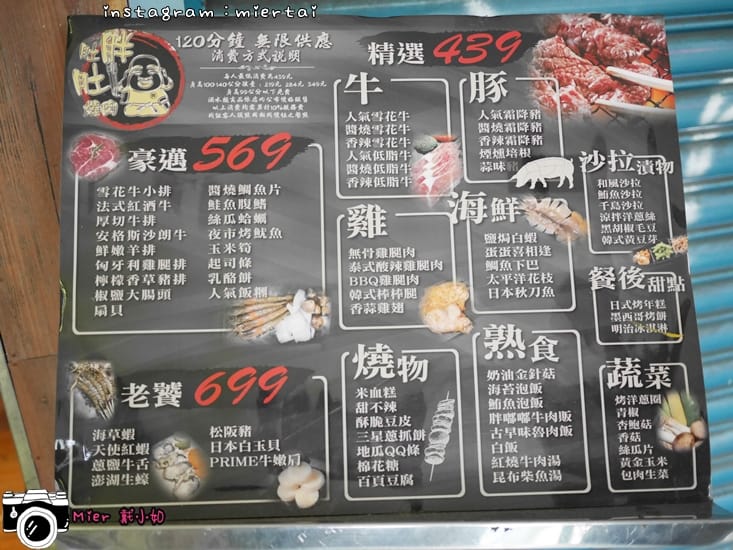 instagram：miertai
胖肚肚
燒肉
120分鐘 無限供應
消費方式說明
每人最低消費為439元
豪邁 569
雪花牛小排
法式紅酒牛
厚切牛排
安格斯沙朗牛
鮮嫩羊排
匈牙利雞腿排
檸檬香草豬排
椒鹽大腸頭
扇貝
醬燒鯛魚片
鮭魚腹鰭
絲瓜蛤蠣
夜市烤魷魚
玉米筍
起司條
乳酪餅
人氣飯糰
老饕 699
海草蝦
天使紅蝦
蔥鹽牛舌
澎湖生蠔
松阪豬
日本白玉貝
PRIME牛嫩肩
精選 439
牛
人氣雪花牛
醬燒雪花牛
香辣雪花牛
人氣低脂牛
醬燒低脂牛
香辣低脂牛
豚
人氣霜降豬
醬燒霜降豬
香辣霜降豬
煙燻培根
蒜味豬
雞
無骨雞腿肉
泰式酸辣雞腿肉
BBQ雞腿肉
韓式棒棒腿
香蒜雞翅
海鮮
鹽焗白蝦
蛋蛋喜相逢
鯛魚下巴
太平洋花枝
日本秋刀魚
沙拉漬物
和風沙拉
鮪魚沙拉
千島沙拉
涼拌洋蔥絲
黑胡椒毛豆
韓式黃豆芽
餐後甜點
日式烤年糕
墨西哥烤餅
明治冰淇淋
燒物
米血糕
甜不辣
酥脆豆皮
三星蔥抓餅
地瓜QQ條
棉花糖
百頁豆腐
熟食
奶油金針菇
海苔泡飯
鮪魚泡飯
胖嘟嘟牛肉飯
古早味魯肉飯
白飯
紅燒牛肉湯
昆布柴魚湯
蔬菜
烤洋蔥圈
青椒
杏鮑菇
香菇
絲瓜片
黃金玉米
包肉生菜
Mier 戴小如